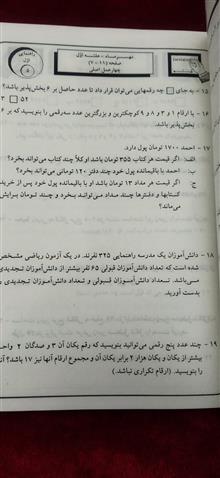 راهنمائی
اول
۵
مهرماه - هفته اول
صفحه (۱۱ - ۷)
چهارعمل اصلی
۱۵ - به جای □ چه رقمهایی می‌توان قرار داد تا عدد حاصل بر ۶ بخش‌پذیر باشد؟
۵۲ □ ۳
۱۶ - با ارقام ۱ و ۳ و ۸ و ۹ کوچکترین و بزرگترین عدد سه‌رقمی را بنویسید که بر ۶
بخش‌پذیر باشد.
۱۷ - احمد ۱۷۰۰ تومان پول دارد.
الف: اگر قیمت هر کتاب ۳۵۵ تومان باشد او کلاً چند کتاب می‌تواند بخرد؟
ب: احمد با باقیمانده پول خود چند دفتر ۱۲۰ تومانی می‌تواند بخرد؟
ج: اگر قیمت هر مداد ۱۳ تومان باشد او با باقیمانده پول خود پس از خرید
کتابها و دفترها چند مداد می‌تواند بخرد و چند تومان برایش
می‌ماند؟
۱۸ - دانش‌آموزان یک مدرسه راهنمایی ۳۲۵ نفرند. در یک آزمون ریاضی مشخص
شده است که تعداد دانش‌آموزان قبولی ۶۵ نفر بیشتر از دانش‌آموزان تجدیدی
می‌باشد. تعداد دانش‌آموزان قبولی و تعداد دانش‌آموزان تجدیدی
بدست آورید.
۱۹ - چند عدد پنج رقمی می‌توانید بنویسید که رقم یکان آن ۳ و صدگان ۲ واحد
بیشتر از یکان و یکان هزار ۲ برابر یکان آن و مجموع ارقام آنها نیز ۱۷ باشد؟
را بنویسید. (ارقام تکراری نباشد.)